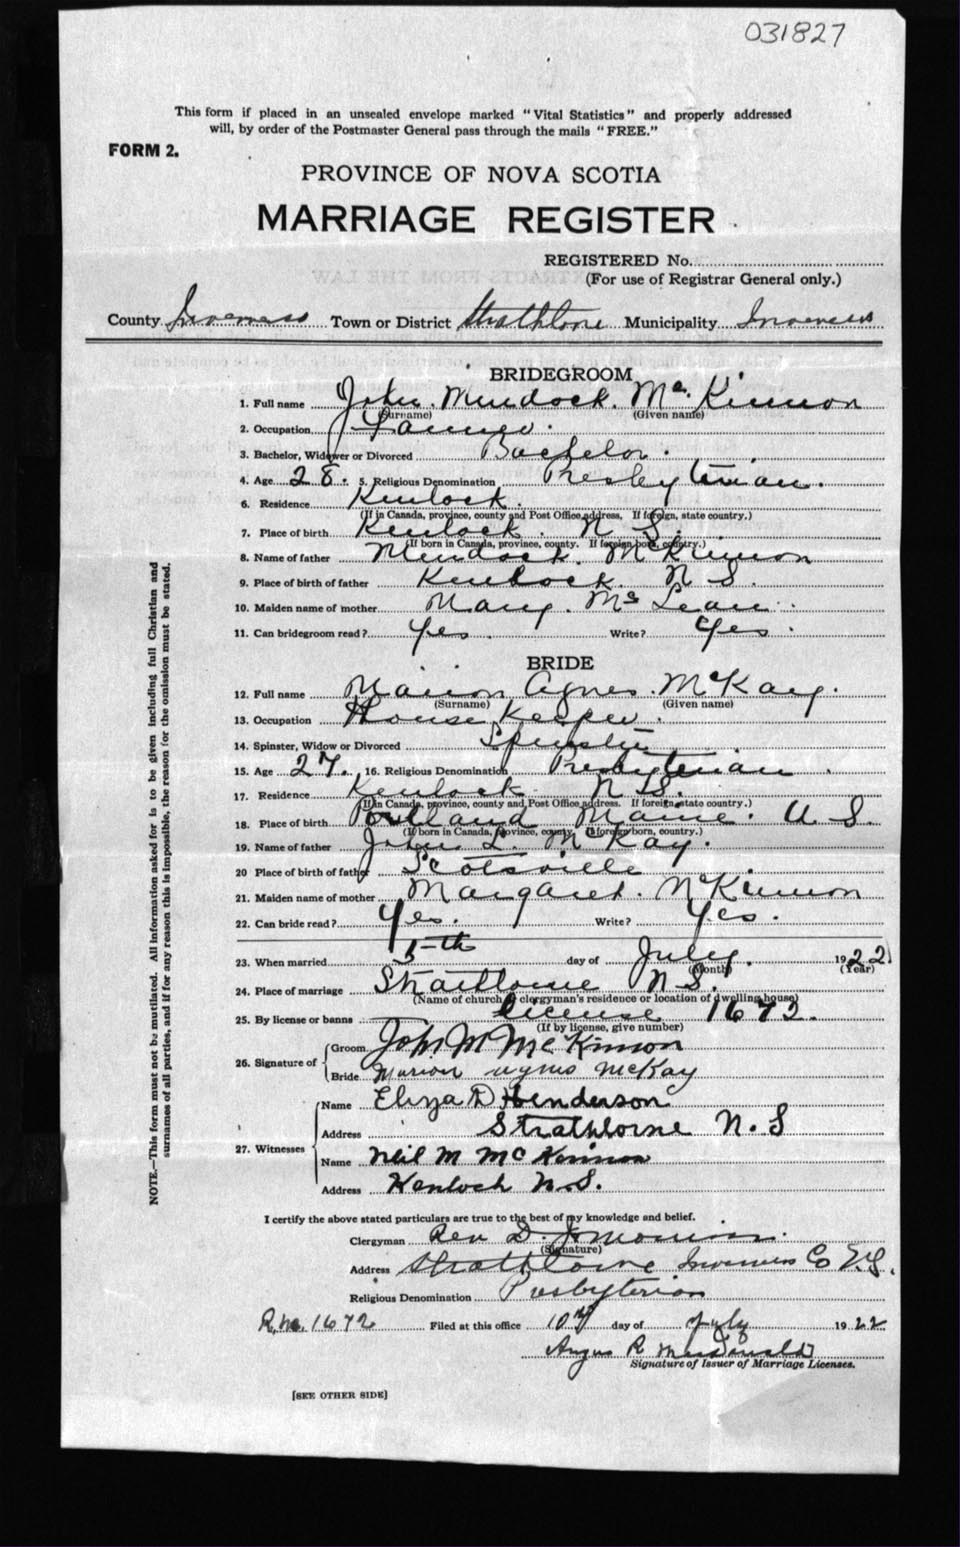 031827
This form if placed in an unsealed envelope marked "Vital Statistics" and properly addressed
will, by order of the Postmaster General pass through the mails "FREE."
FORM 2.
PROVINCE OF NOVA SCOTIA
MARRIAGE REGISTER
REGISTERED No.
(For use of Registrar General only.)
County Inverness Town or District Strathlorne Municipality Inverness
BRIDEGROOM
1. Full name John Murdock McKinnon
(Surname) (Given name)
2. Occupation Farmer.
3. Bachelor, Widower or Divorced Bachelor.
4. Age 28. 5. Religious Denomination Presbyterian.
6. Residence Kenlock.
(If in Canada, province, county and Post Office address. If foreign, state country.)
7. Place of birth Kenlock. N S.
(If born in Canada, province, county. If foreign born, country.)
8. Name of father Murdock. McKinnon
9. Place of birth of father Kenlock. N S.
10. Maiden name of mother Mary. McLean
11. Can bridegroom read? Yes. Write? Yes.
BRIDE
12. Full name Marion Agnes. McKay.
(Surname) (Given name)
13. Occupation House Keeper.
14. Spinster, Widow or Divorced Spinster
15. Age 27. 16. Religious Denomination Presbyterian.
17. Residence Kenlock N S.
(If in Canada, province, county and Post Office address. If foreign, state country.)
18. Place of birth Portland Maine. U S.
(If born in Canada, province, county. If foreign born, country.)
19. Name of father John L. McKay.
20 Place of birth of father Scotsville
21. Maiden name of mother Margaret. McKinnon
22. Can bride read? Yes. Write? Yes.
23. When married 5th day of July. 1922
(Month) (Year)
24. Place of marriage Strathlorne N S.
(Name of church, clergyman's residence or location of dwelling house)
25. By license or banns License 1672.
(If by license, give number)
26. Signature of
Groom John M McKinnon
Bride Marion Agnes McKay
27. Witnesses
Name Eliza D Henderson
Address Strathlorne N.S
Name Neil M McKinnon
Address Kenloch N.S.
I certify the above stated particulars are true to the best of my knowledge and belief.
Clergyman Rev D. J. Morrison.
(Signature)
Address Strathlorne Inverness Co N.S.
Religious Denomination Presbyterian
R. no. 1672 Filed at this office 10th day of July 1922
Angus R McDonald
Signature of Issuer of Marriage Licenses.
[SEE OTHER SIDE]
NOTE.—This form must not be mutilated. All information asked for is to be given including full Christian and
surnames of all parties, and if for any reason this is impossible, the reason for the omission must be stated.